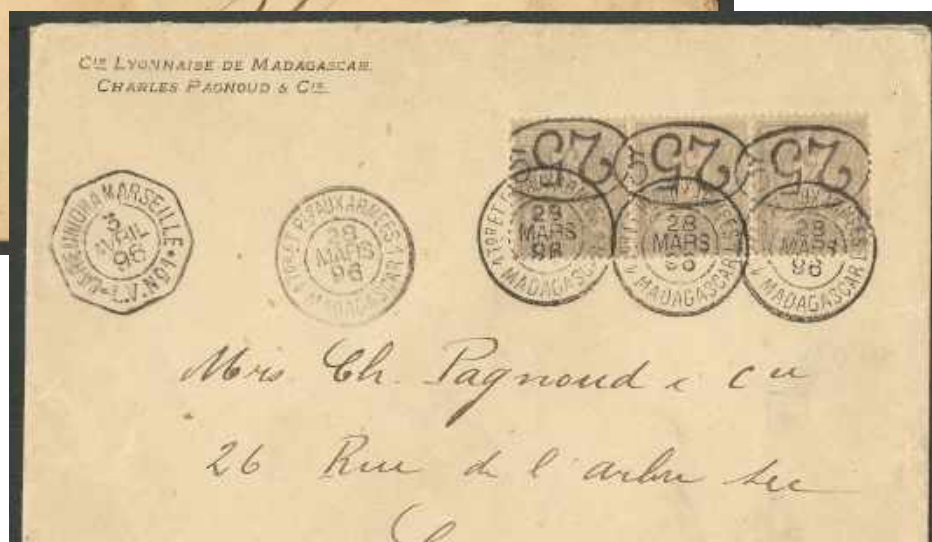 Cie LYONNAISE DE MADAGASCAR.
CHARLES PAGNOUD & Cie.
25 25 25
LA RÉUNION A MARSEILLE
3
AVRIL
96
L.V. N°1
TOR ET P. AUX ARMÉES
28
MARS
96
MADAGASCAR
28
MARS
96
MADAGASCAR
28
MARS
96
MADAGASCAR
28
MARS
96
MADAGASCAR
Mrs Ch. Pagnoud & Cie
26 Rue de l'arbre sec